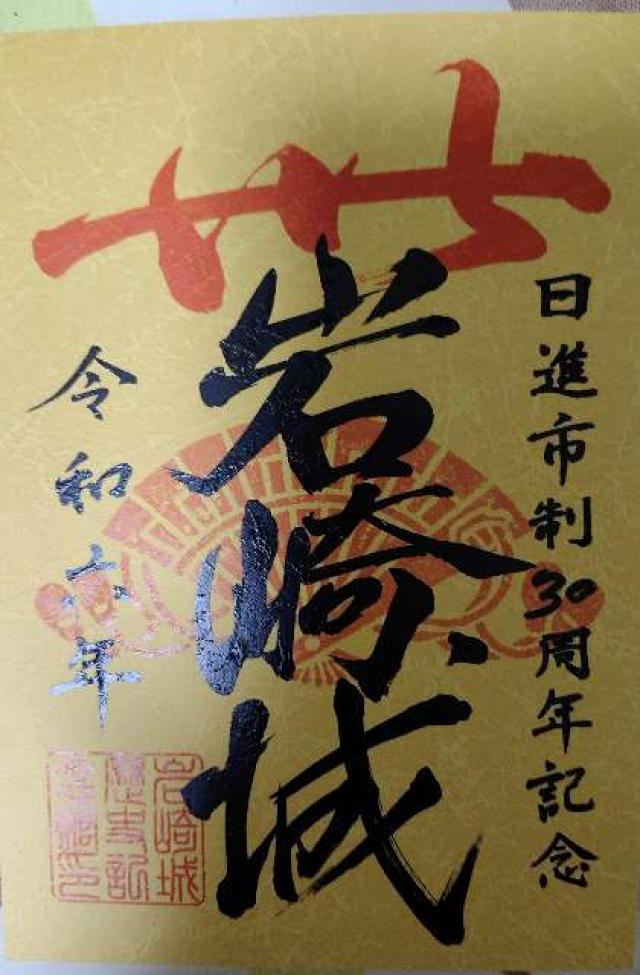 丗
日進市制30周年記念
岩崎城
令和六年
岩崎城
歴史記